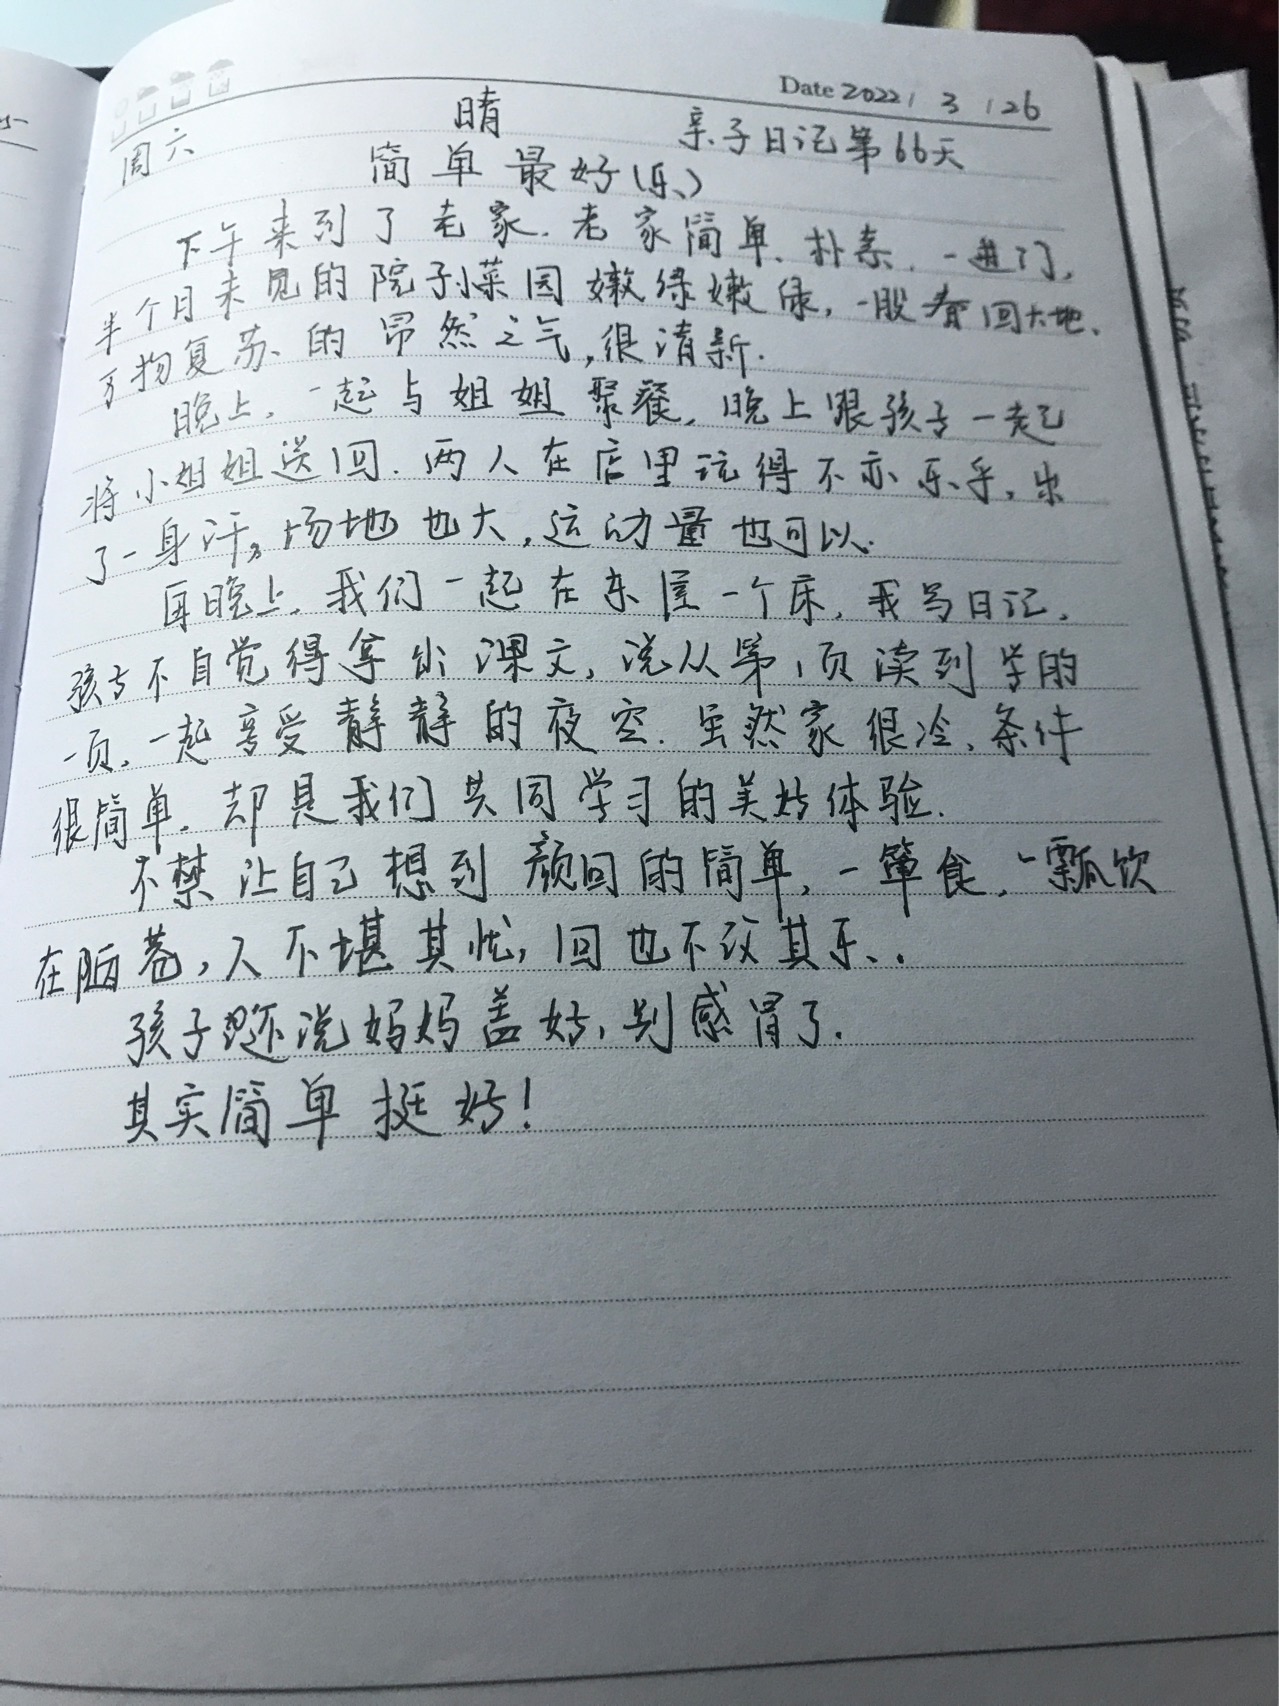 Date 2022 / 3 / 26
周六 晴 亲子日记第66天
简单最好(乐)
下午来到了老家.老家简单、朴素.一进门,
半个月未见的院子小菜园嫩绿嫩绿,一股春回大地、
万物复苏的昂然之气,很清新.
晚上,一起与姐姐聚餐,晚上跟孩子一起
将小姐姐送回.两人在店里玩得不亦乐乎,出
了一身汗,场地也大,运动量也可以.
再晚上,我们一起在东屋一个床,我写日记,
孩子不自觉得拿出课文,说从第1页读到学的
一页,一起享受静静的夜空.虽然家很冷、条件
很简单,却是我们共同学习的美好体验.
不禁让自己想到颜回的简单,一箪食,一瓢饮
在陋巷,人不堪其忧,回也不改其乐.
孩子还说妈妈盖好,别感冒了.
其实简单挺好!